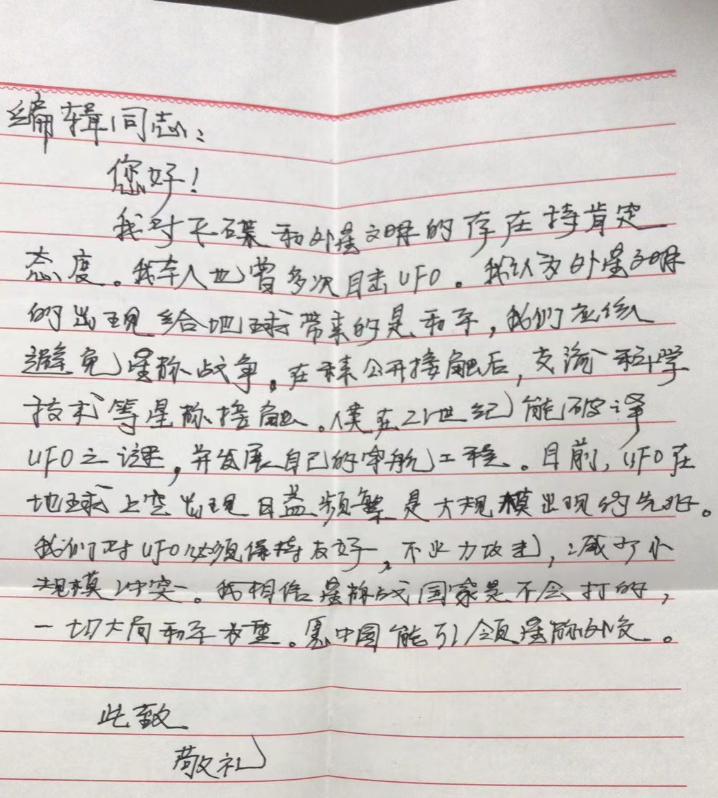 编辑同志：
您好！
我对飞碟和外星文明的存在持肯定
态度。我本人也曾多次目击UFO。我认为外星文明
的出现给地球带来的是和平，我们应该
避免星际战争。在未公开接触后，交流科学
技术等星际接触。仅在21世纪能破译
UFO之谜，并发展自己的宇航工程。目前，UFO在
地球上空出现日益频繁是大规模出现的先兆。
我们对UFO必须保持友好，不火力攻击，减少小
规模冲突。我相信星际战国家是不会打的，
一切大局和平为重。愿中国能引领星际外交。
此致
敬礼